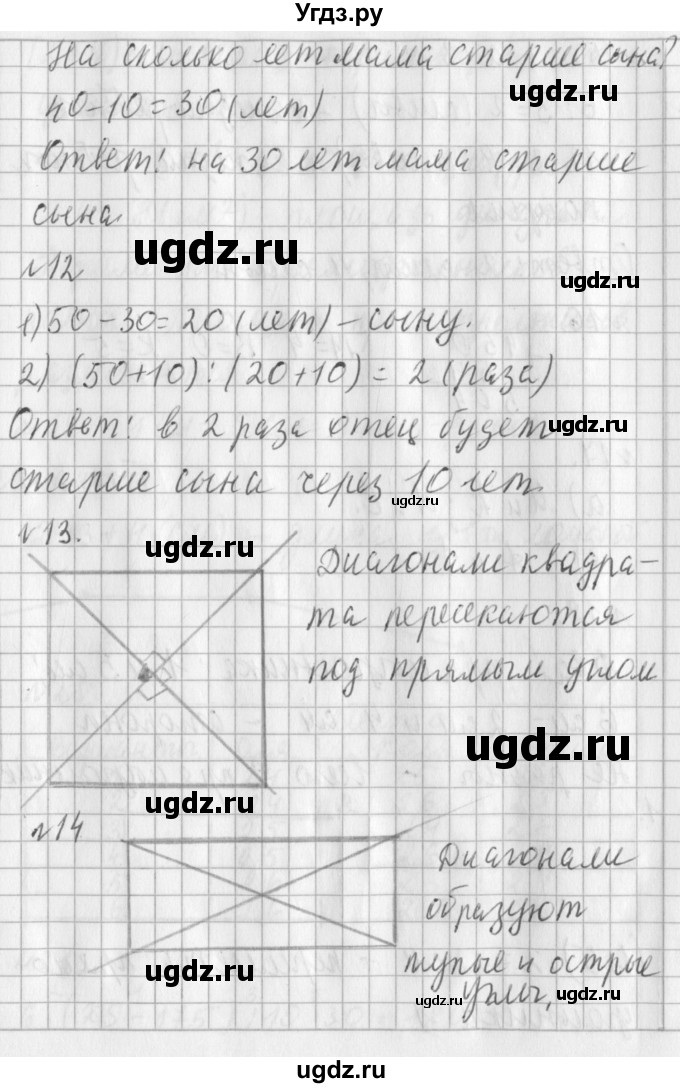 Угдз.ру
На сколько лет мама старше сына?
ugdz.ru
40-10=30(лет)
Ответ: на 30 лет мама старше
сына.
ugdz.ru
№12
ugdz.ru
1)50-30=20(лет)-сыну.
2) (50+10):(20+10)=2(раза)
Ответ: в 2 раза отец будет
ugdz.ru
старше сына через 10 лет.
ugdz.ru
№13.
ugdz.ru
Диагонали квадра-
та пересекаются
под прямым углом
ugdz.ru
ugdz.ru
№14
Диагонали
образуют
тупые и острые
ugdz.ru
углы,
ugdz.ru
ugdz.ru
ugdz.ru